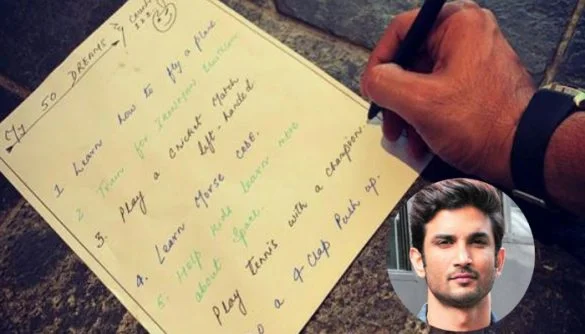 My 50 DREAMS & Counting
1. Learn how to fly a plane
2 Train for IRONMAN triathlon
3. Play a cricket Match
left-handed
4. Learn Morse CODE.
5. Help kids learn more
about Space.
Play tennis with a champion.
a 4-Clap Push up.